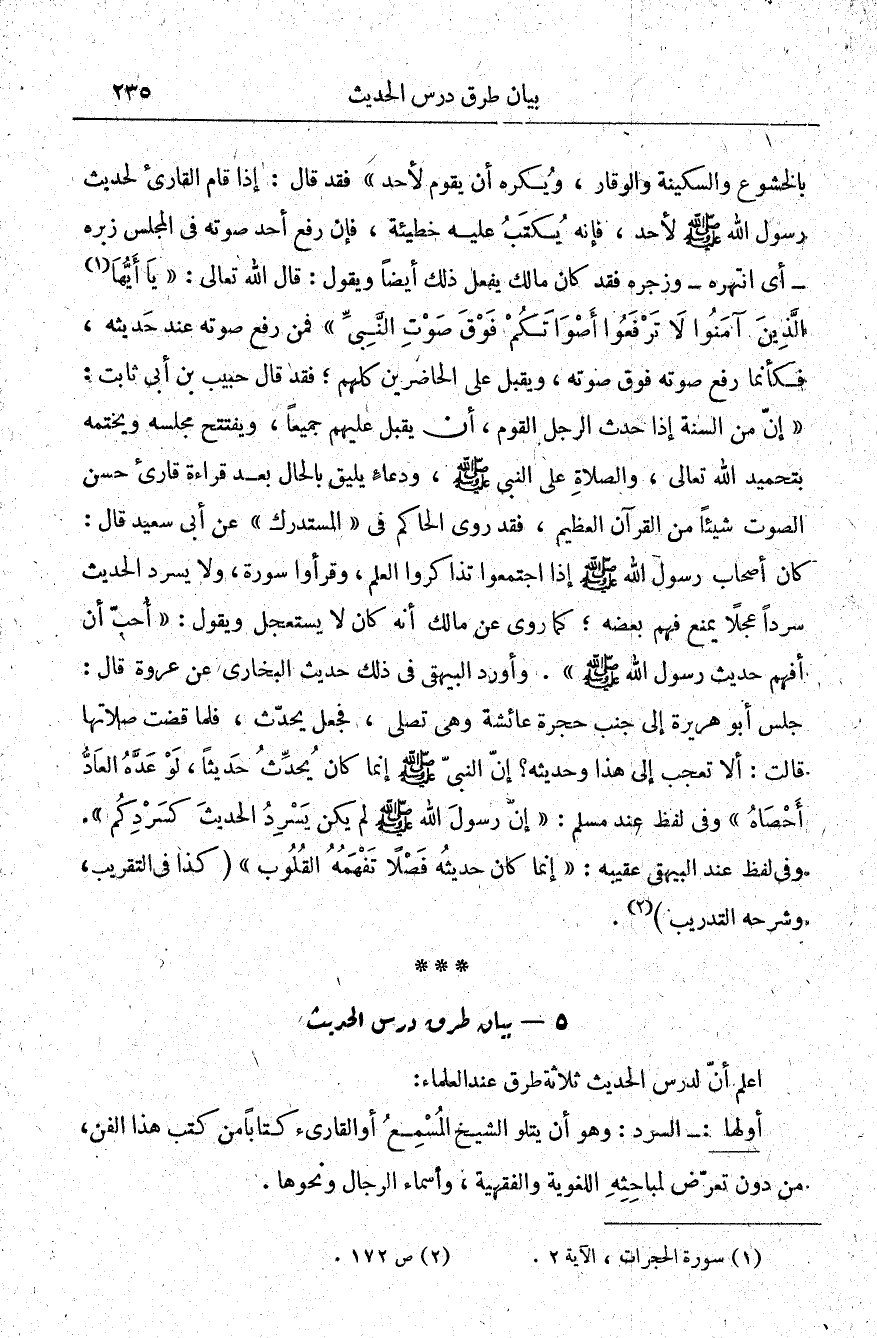 بيان طرق درس الحديث ٢٣٥
بالخشوع والسكينة والوقار ، ويُكره أن يقوم لأحد » فقد قال : إذا قام القارئ لحديث
رسول الله ﷺ لأحد ، فإنه يُكتَبُ عليه خطيئة ، فإن رفع أحد صوته فى المجلس زبره
ـ أى انتهره ـ وزجره فقد كان مالك يفعل ذلك أيضاً ويقول : قال الله تعالى : « يَا أَيُّهَا(١)
الَّذِينَ آمَنُوا لَا تَرْفَعُوا أَصْوَاتَكُمْ فَوْقَ صَوْتِ النَّبِيِّ » فمن رفع صوته عند حَديثه ،
فكأنما رفع صوته فوق صوته ، ويقبل على الحاضرين كلهم ؛ فقد قال حبيب بن أبي ثابت :
« إنّ من السنة إذا حدث الرجل القوم ، أن يقبل عليهم جميعاً ، ويفتتح مجلسه ويختمه
بتحميد الله تعالى ، والصلاةِ على النبي ﷺ ، ودعاءٍ يليق بالحال بعد قراءة قارئ حسن
الصوت شيئاً من القرآن العظيم ، فقد روى الحاكم فى « المستدرك » عن أبى سعيد قال :
كان أصحاب رسول الله ﷺ إذا اجتمعوا تذاكروا العلم ، وقرأوا سورة ، ولا يسرد الحديث
سرداً عجلًا يمنع فهم بعضه ؛ كما روى عن مالك أنه كان لا يستعجل ويقول : « أُحبّ أن
أفهم حديث رسول الله ﷺ » . وأورد البيهقى فى ذلك حديث البخارى عن عروة قال :
جلس أبو هريرة إلى جنب حجرة عائشة وهى تصلى ، فجعل يحدّث ، فلما قضت صلاتها
قالت : ألا تعجب إلى هذا وحديثه؟ إنّ النبيّ ﷺ إنما كان يُحدِّثُ حَديثاً ، لَوْ عَدَّهُ العَادُّ
أَحْصَاهُ » وفى لفظ عند مسلم : « إنّ رسولَ الله ﷺ لم يكن يَسْرِدُ الحديثَ كَسَرْدِكُم ».
وفى لفظ عند البيهقى عقيبه : « إنما كان حديثُه فَصْلًا تَفْهَمُهُ القُلُوب » ( كذا فى التقريب ،
وشرحه التدريب )(٢) .
***
٥ — بيان طرق درس الحديث
اعلم أنّ لدرس الحديث ثلاثة طرق عند العلماء :
أولها :ـ السرد : وهو أن يتلو الشيخ المُسْمِعُ أو القارىء كتاباً من كتب هذا الفن ،
من دون تعرّض لمباحِثِهِ اللغوية والفقهية ، وأسماء الرجال ونحوها .
(١) سورة الحجرات ، الآية ٢ . (٢) ص ١٧٢ .